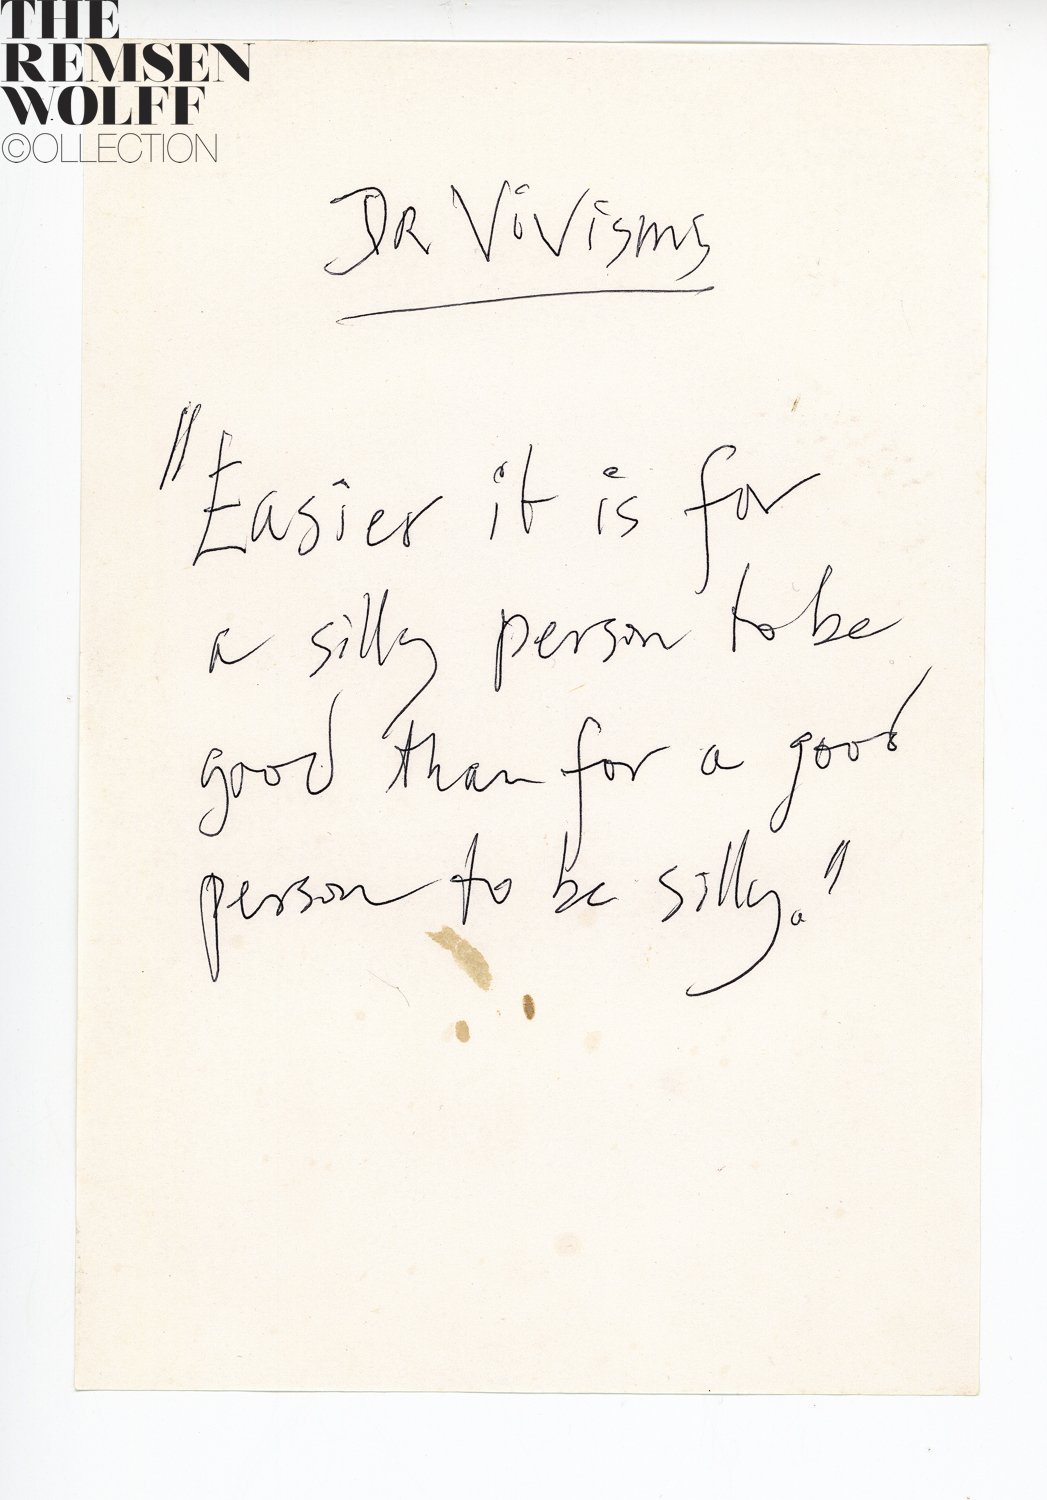 THE
REMSEN
WOLFF
©OLLECTION
DR ViVisms
"Easier it is for
a silly person to be
good than for a good
person to be silly."